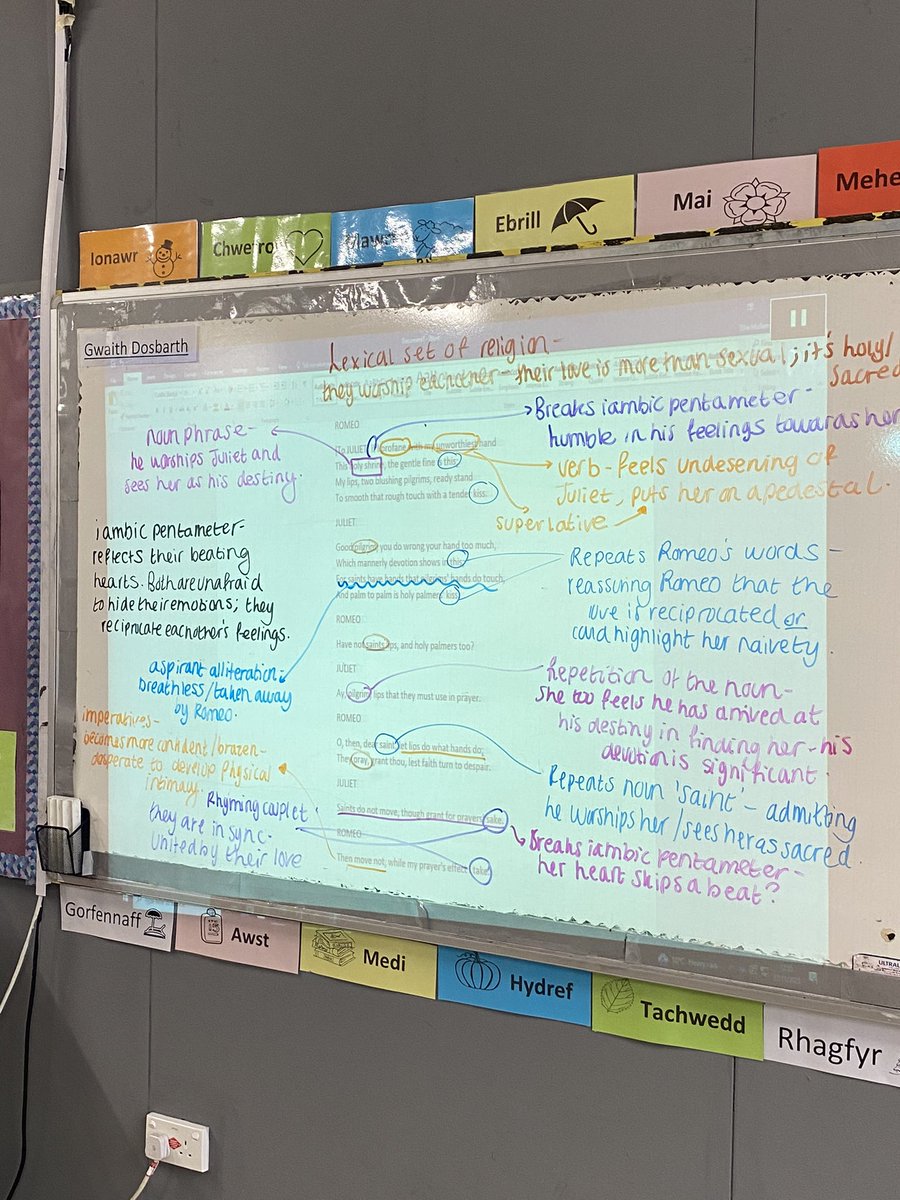 Ionawr
Chwefror
Mawrth
Ebrill
Mai
Mehe
Gwaith Dosbarth
Lexical set of religion -
they worship eachother - their love is more than sexual; it's holy/
sacred
noun phrase -
he worships Juliet and
sees her as his destiny.
iambic pentameter -
reflects their beating
hearts. Both are unafraid
to hide their emotions; they
reciprocate eachother's feelings.
aspirant alliteration -
breathless/taken away
by Romeo.
imperatives -
becomes more confident/brazen -
desperate to develop physical
intimacy.
Rhyming couplet
they are in sync.
United by their love
ROMEO
[To JULIET] profane with my unworthiest hand
This holy shrine, the gentle fine is this:
My lips, two blushing pilgrims, ready stand
To smooth that rough touch with a tender kiss.
JULIET
Good pilgrim, you do wrong your hand too much,
Which mannerly devotion shows in this;
For saints have hands that pilgrims' hands do touch,
And palm to palm is holy palmers' kiss.
ROMEO
Have not saints lips, and holy palmers too?
JULIET
Ay, pilgrim, lips that they must use in prayer.
ROMEO
O, then, dear saint, let lips do what hands do;
They pray, grant thou, lest faith turn to despair.
JULIET
Saints do not move, though grant for prayers' sake.
ROMEO
Then move not, while my prayer's effect I take.
Breaks iambic pentameter -
humble in his feelings towards her
verb - feels undeserving of
Juliet, puts her on a pedestal.
superlative
Repeats Romeo's words -
reassuring Romeo that the
love is reciprocated or
could highlight her naivety.
Repetition of the noun -
She too feels he has arrived at
his destiny in finding her - his
devotion is significant.
Repeats noun 'saint' - admitting
he worships her/sees her as sacred.
Breaks iambic pentameter -
her heart skips a beat?
Gorfennaff
Awst
Medi
Hydref
Tachwedd
Rhagfyr